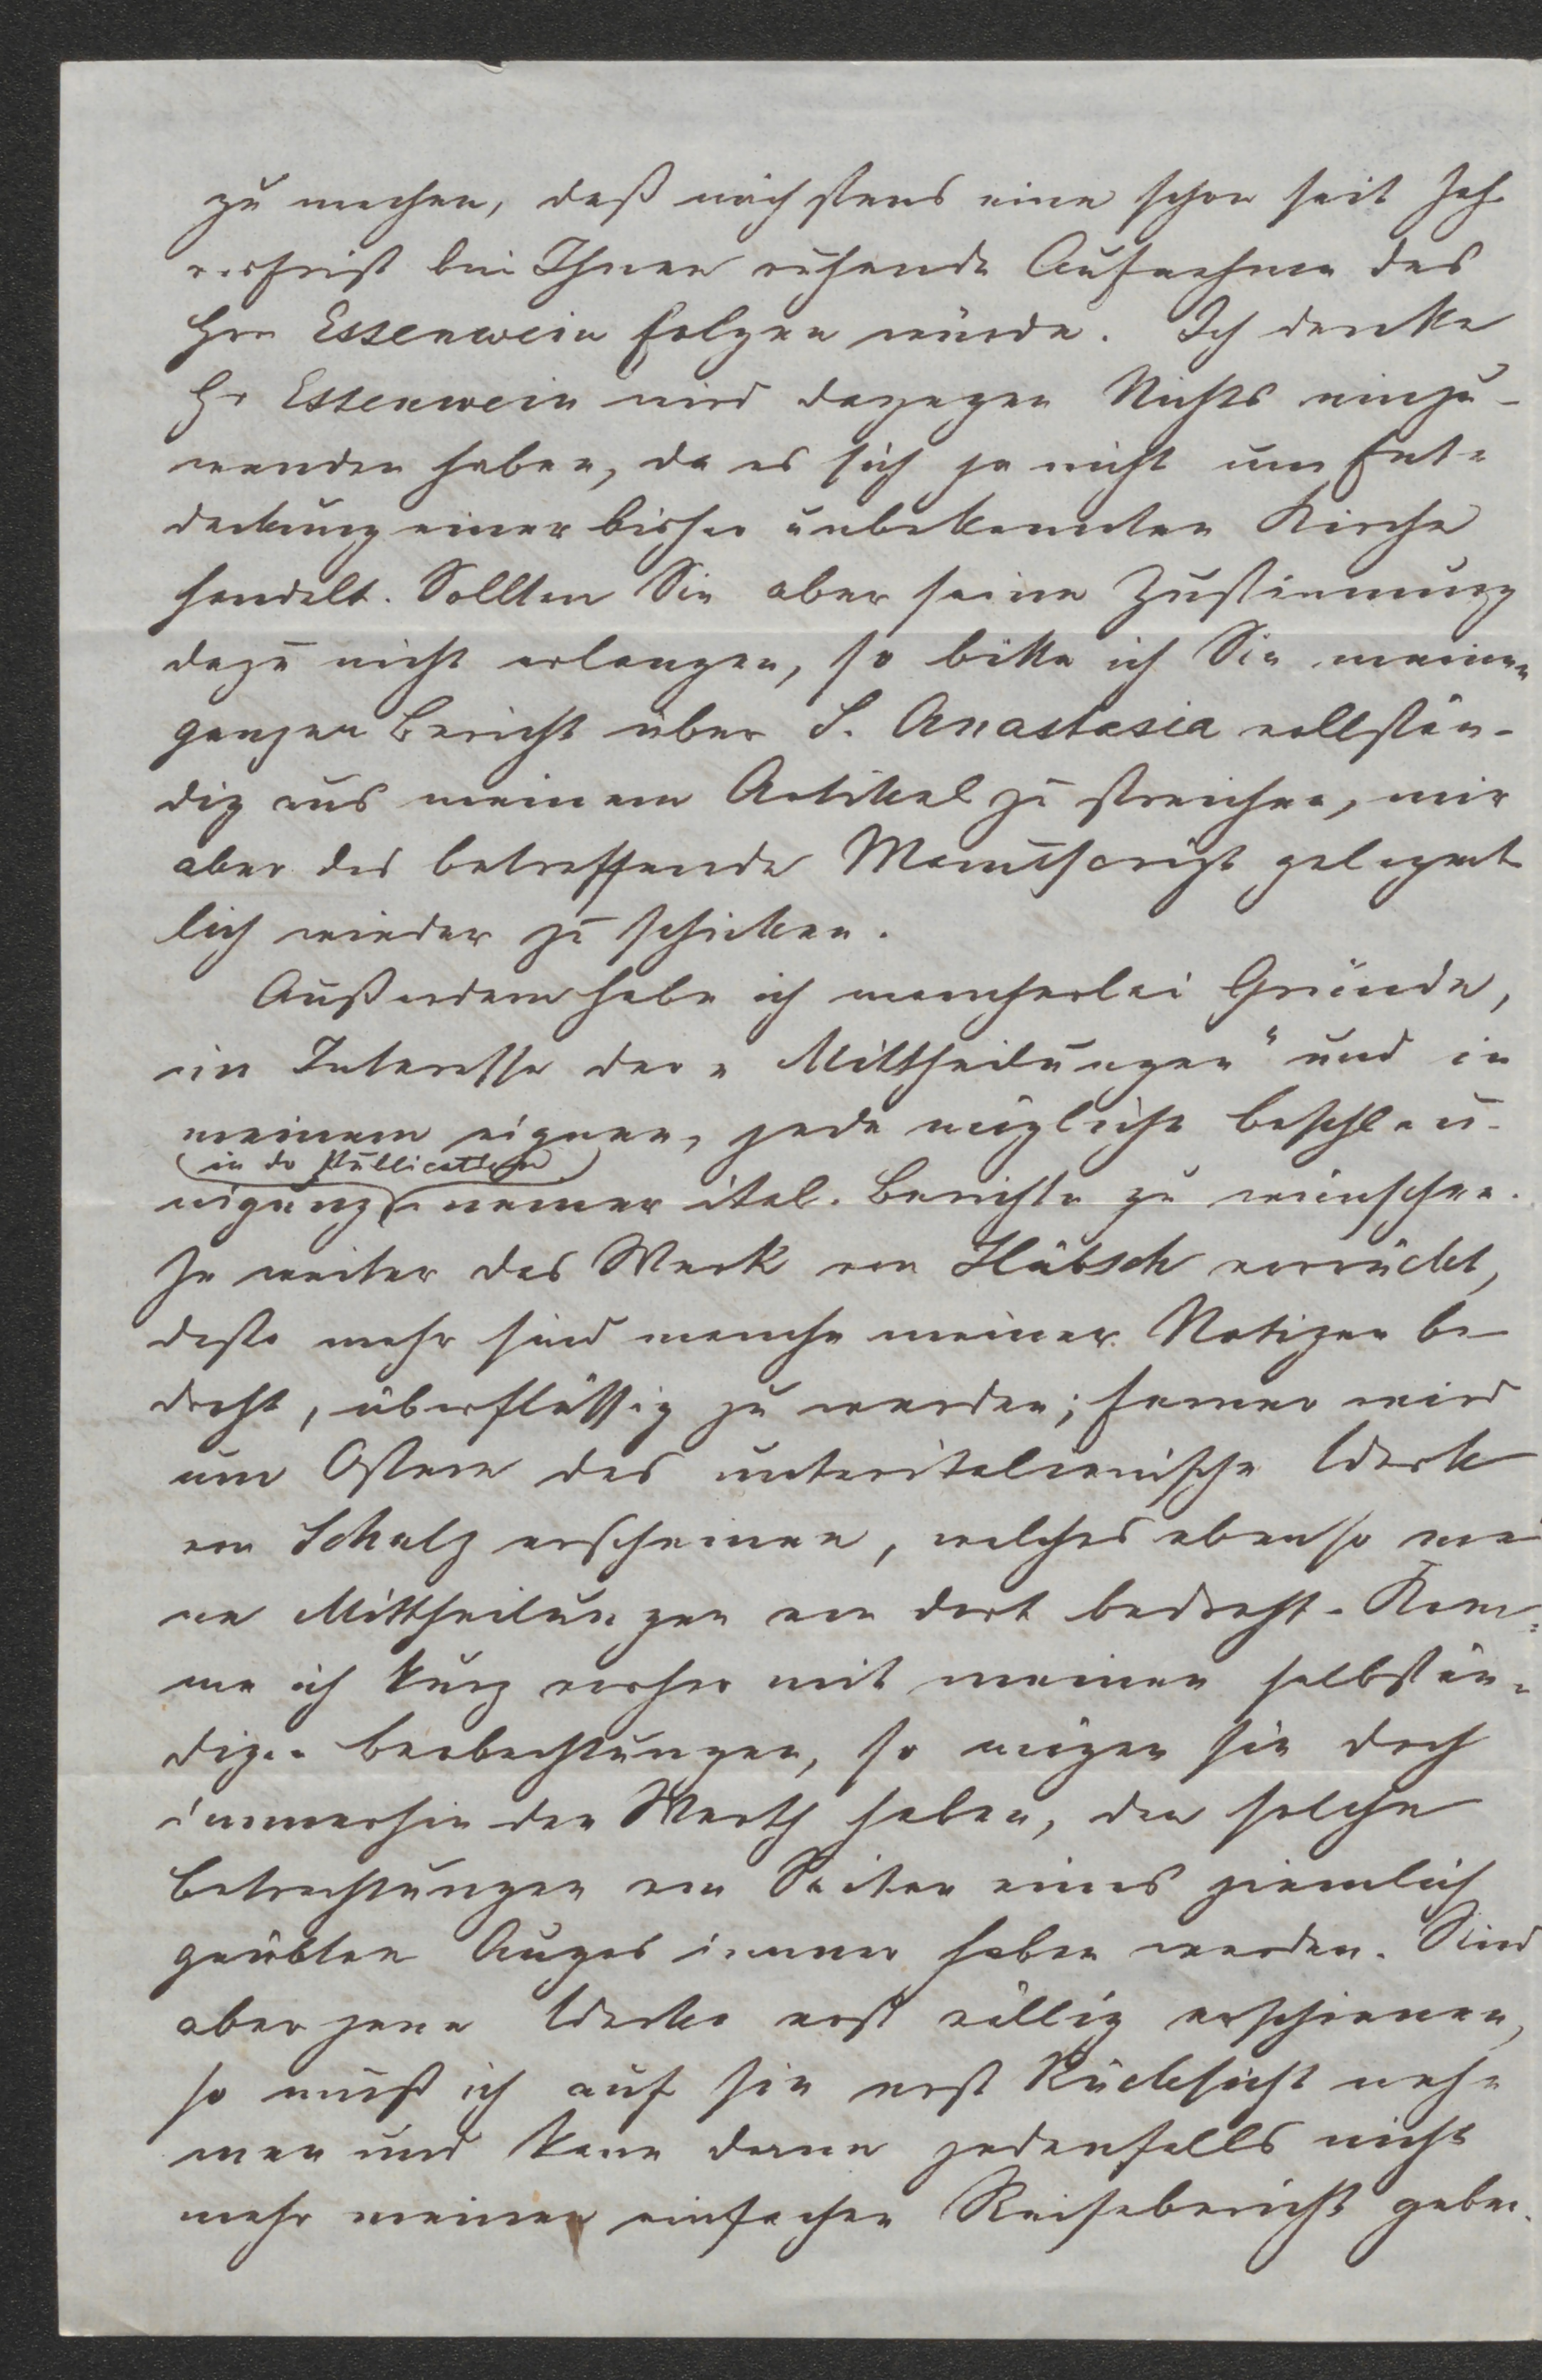 zu machen, daß nächstens eine schon seit Jah-
resfrist bei Ihnen ruhende Aufnahme des
Hrn Essenwein folgen würde. Ich denke
Hr Essenwein wird dagegen Nichts einzu-
wenden haben, da es sich ja nicht um Ent-
deckung einer bisher unbekannten Kirche
handelt. Sollten Sie aber seine Zustimmung
dazu nicht erlangen, so bitte ich Sie meinen
ganzen Bericht über S. Anastasia vollstän-
dig aus meinem Artikel zu streichen, mir
aber das betreffende Manuscript gelegent-
lich wieder zu schicken.
Außerdem habe ich mancherlei Gründe,
im Interesse der „Mittheilungen“ und in
meinem eignen, jede mögliche Beschleu-
in der Publication
nigung meiner ital. Berichte zu wünschen.
Je weiter das Werk von Hübsch vorrückt,
desto mehr sind manche meiner Notizen be-
droht, überflüssig zu werden; ferner wird
um Ostern das unteritalienische Werk
von Schulz erscheinen, welches ebenso mei-
ne Mittheilungen von dort bedroht. Kom-
me ich kurz vorher mit meinen selbstän-
digen Beobachtungen, so mögen sie doch
immerhin den Werth haben, den solche
Betrachtungen von Seiten eines ziemlich
geübten Auges immer haben werden. Sind
aber jene Werke erst völlig erschienen,
so muß ich auf sie erst Rücksicht neh-
men und kann dann jedenfalls nicht
mehr meinen einfachen Reisebericht geben.